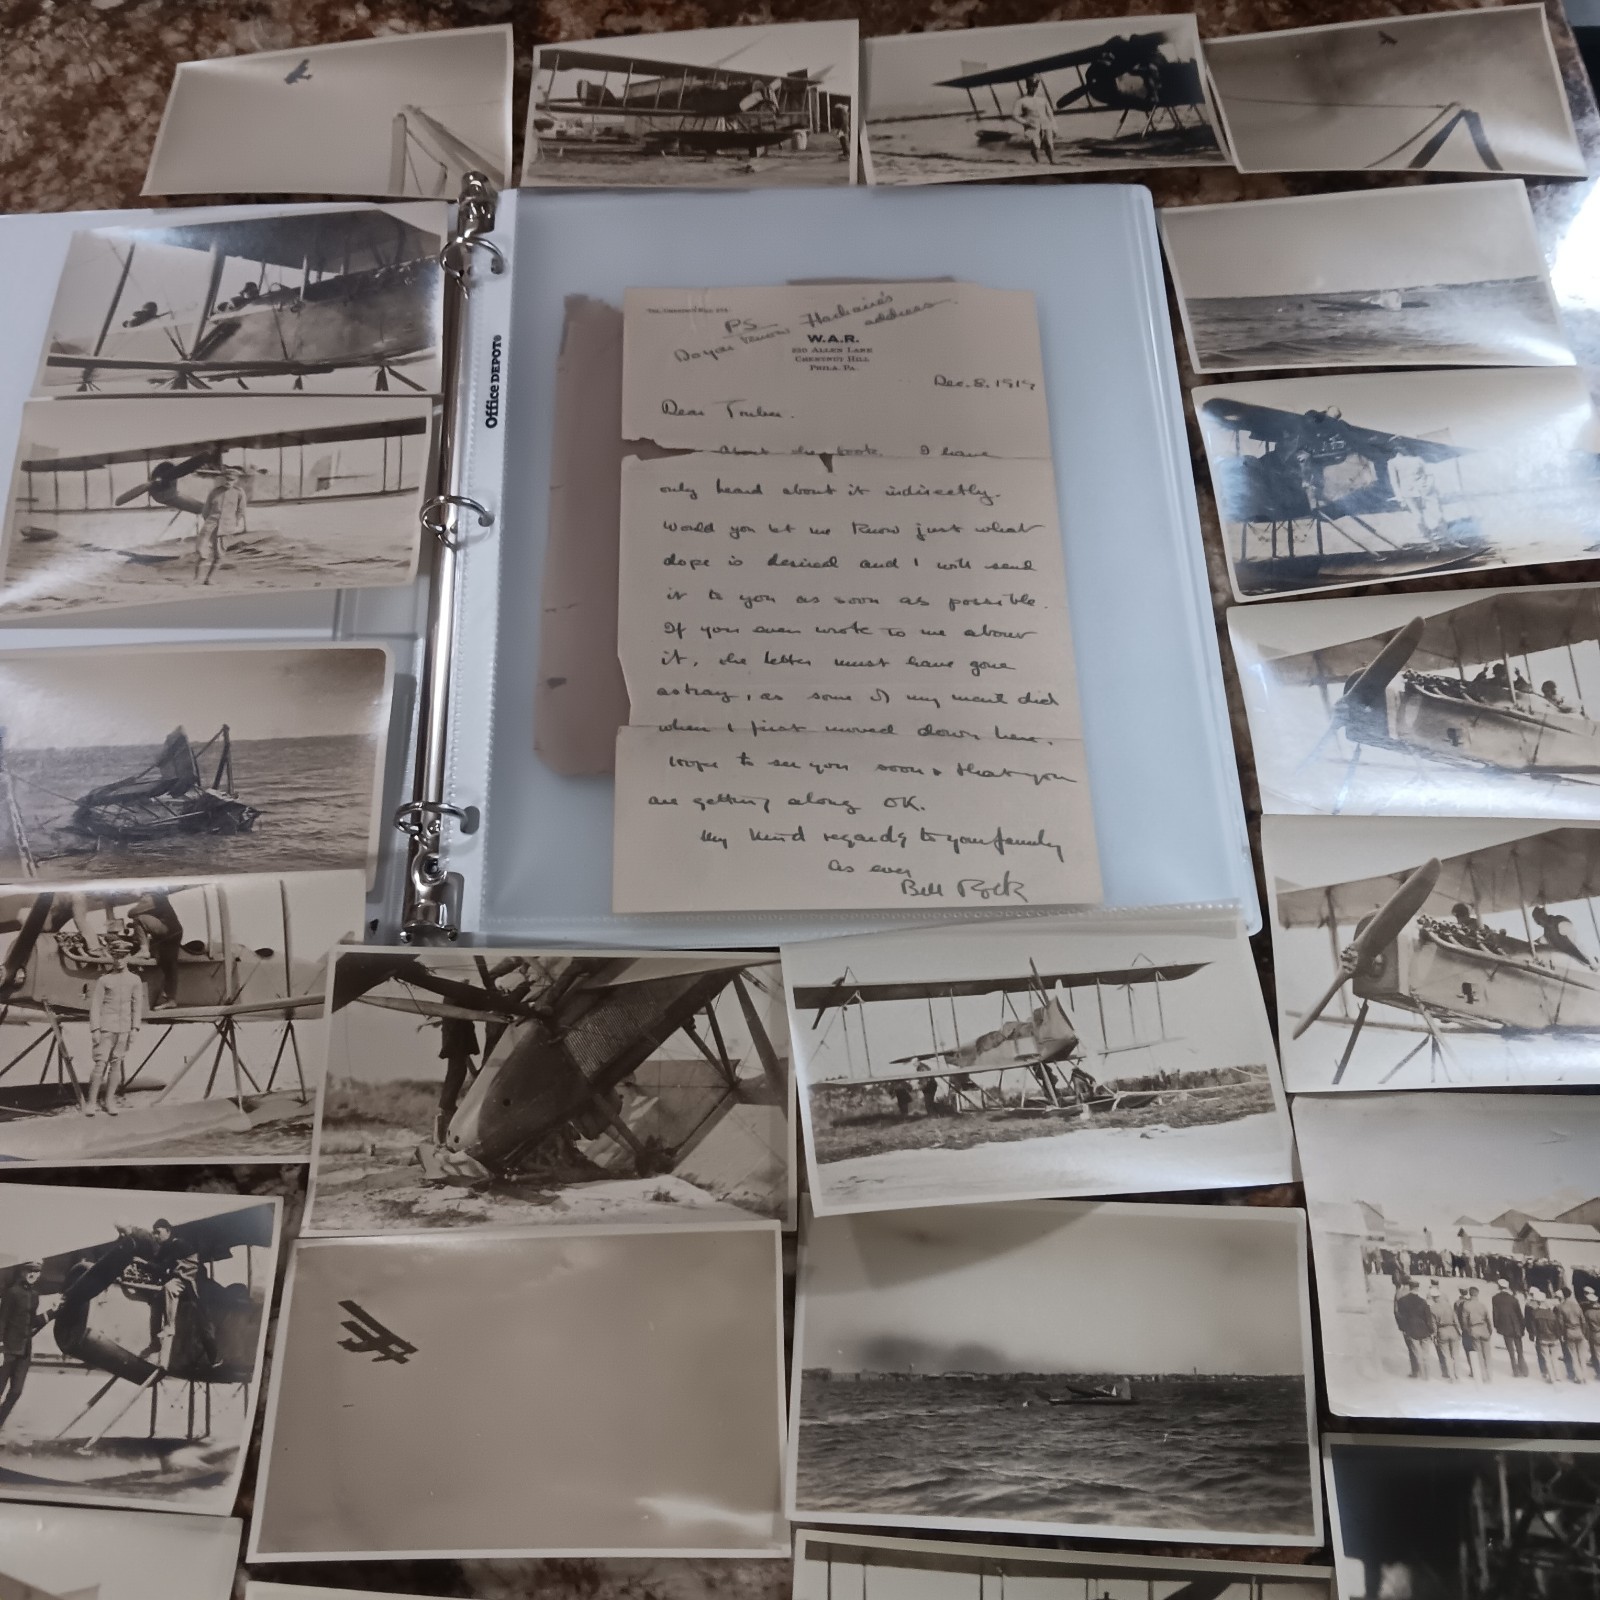 Office DEPOT®
PS
Do you know
address
W.A.R.
Allen Lane
Chestnut Hill
Phila. Pa.
Dec. 8. 1919
Dear
About the book. I have
only heard about it indirectly.
Would you let me know just what
dope is desired and I will send
it to you as soon as possible.
If you ever wrote to me about
it, the letter must have gone
astray, as some of my mail did
when I first moved down here.
Hope to see you soon & that you
are getting along OK.
My kind regards to your family
As ever
Bill Rock